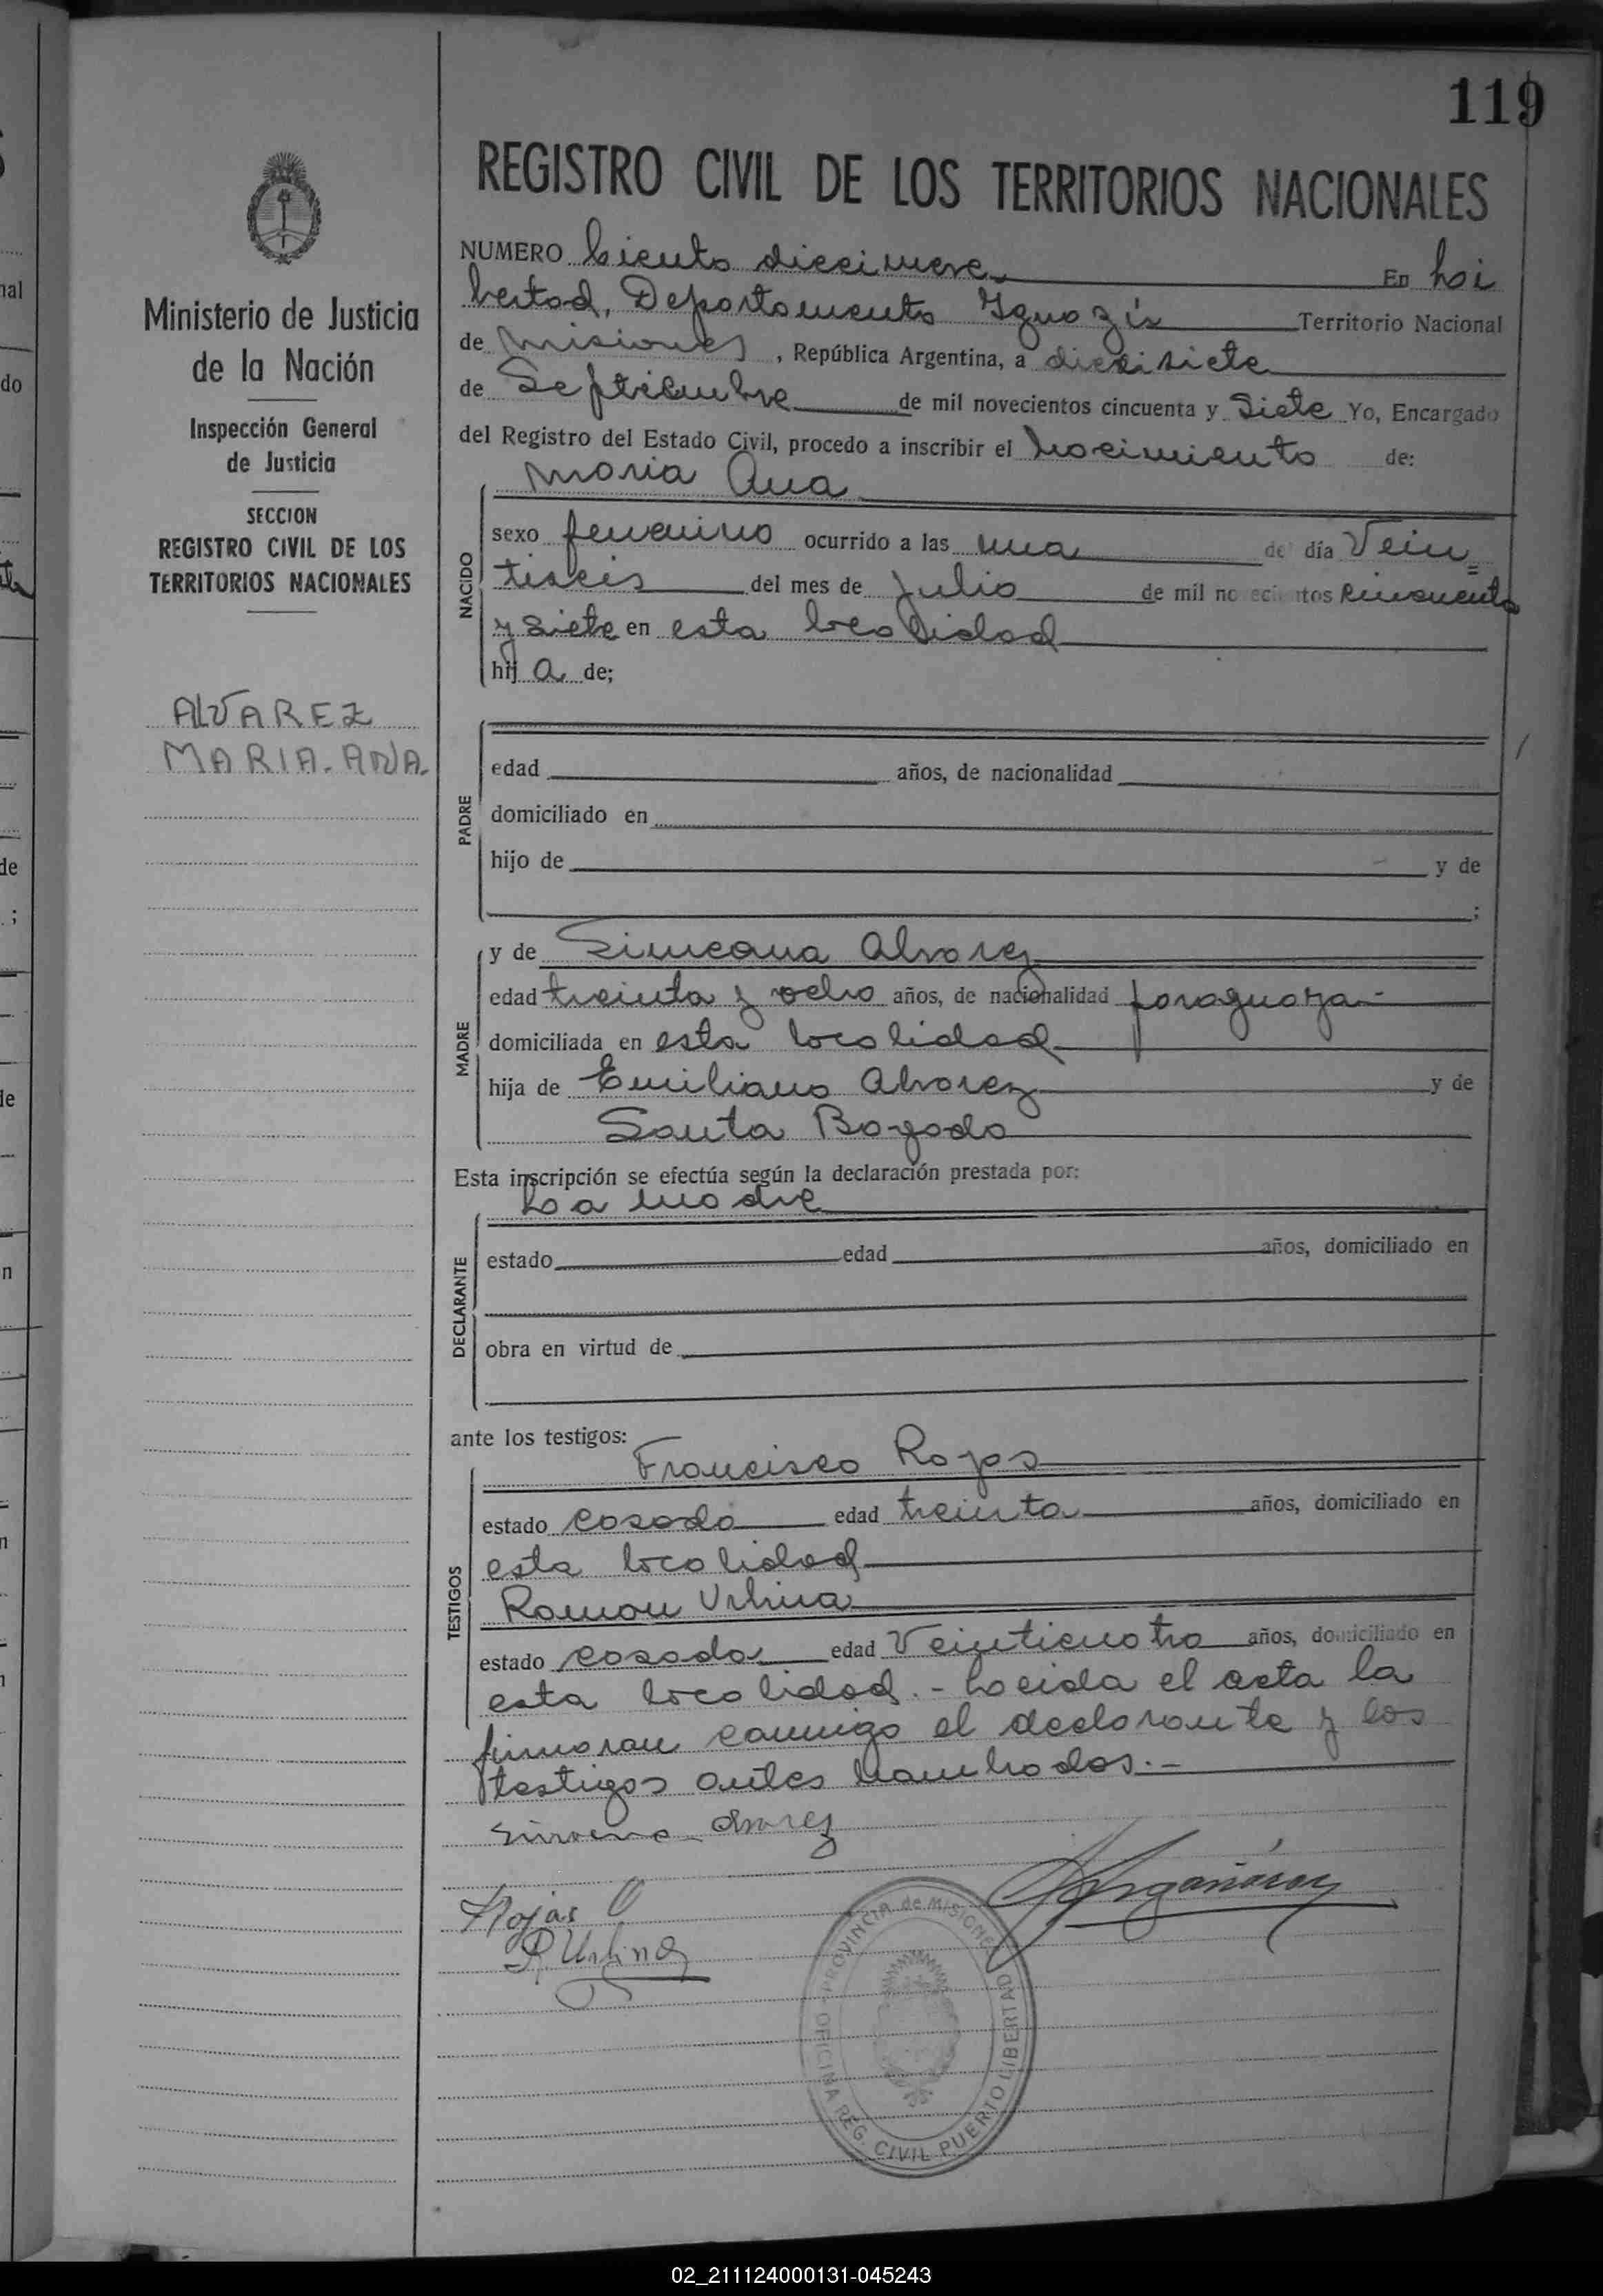 119
REGISTRO CIVIL DE LOS TERRITORIOS NACIONALES
Ministerio de Justicia
de la Nación
Inspección General
de Justicia
SECCION
REGISTRO CIVIL DE LOS
TERRITORIOS NACIONALES
ALVAREZ
MARIA. ANA.
NUMERO Ciento diecinueve En Li
bertad, Departamento Iguazú Territorio Nacional
de Misiones, República Argentina, a diecisiete
de Septiembre de mil novecientos cincuenta y Siete Yo, Encargado
del Registro del Estado Civil, procedo a inscribir el Nacimiento de:
Maria Ana
NACIDO
sexo femenino ocurrido a las una del día Vein=
tiseis del mes de Julio de mil novecientos cincuenta
y Siete en esta localidad
hij a de;
PADRE
edad años, de nacionalidad
domiciliado en
hijo de y de
;
MADRE
y de Simeona Alvarez
edad treinta y ocho años, de nacionalidad paraguaya-
domiciliada en esta localidad
hija de Emiliano Alvarez y de
Santa Bogado
Esta inscripción se efectúa según la declaración prestada por:
La madre
DECLARANTE
estado edad años, domiciliado en
obra en virtud de
ante los testigos:
TESTIGOS
Francisco Rojas
estado casado edad treinta años, domiciliado en
esta localidad
Ramon Urbina
estado casado edad Veinticuatro años, domiciliado en
esta localidad.- Leida el acta la
firmaran conmigo el declarante y los
testigos antes nombrados.-
Alvarez
Rojas
R. Urbina
PROVINCIA de MISIONES
OFICINA REG. CIVIL PUERTO LIBERTAD
02_211124000131-045243